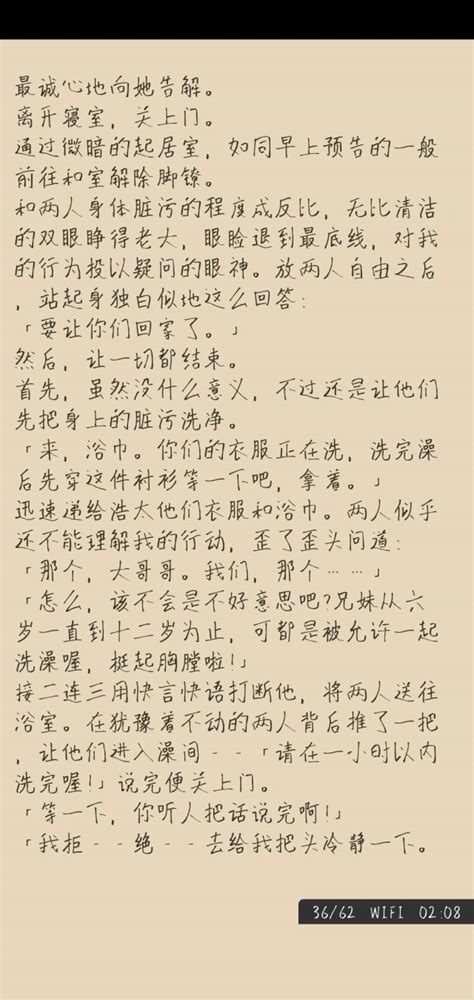 最诚心地向她告解。
离开寝室，关上门。
通过微暗的起居室，如同早上预告的一般
前往和室解除脚镣。
和两人身体脏污的程度成反比，无比清洁
的双眼睁得老大，眼睑退到最底线，对我
的行为投以疑问的眼神。放两人自由之后
，站起身独白似地这么回答：
「要让你们回家了。」
然后，让一切都结束。
首先，虽然没什么意义，不过还是让他们
先把身上的脏污洗净。
「来，浴巾。你们的衣服正在洗，洗完澡
后先穿这件衬衫等一下吧，拿着。」
迅速递给浩太他们衣服和浴巾。两人似乎
还不能理解我的行动，歪了歪头问道：
「那个，大哥哥。我们，那个……」
「怎么，该不会是不好意思吧？兄妹从六
岁一直到十二岁为止，可都是被允许一起
洗澡喔，挺起胸膛啦！」
接二连三用快言快语打断他，将两人送往
浴室。在犹豫着不动的两人背后推了一把
，让他们进入澡间--「请在一小时以内
洗完喔！」说完便关上门。
「等一下，你听人把话说完啊！」
「我拒--绝--去给我把头冷静一下。
36/62 WIFI 02:08